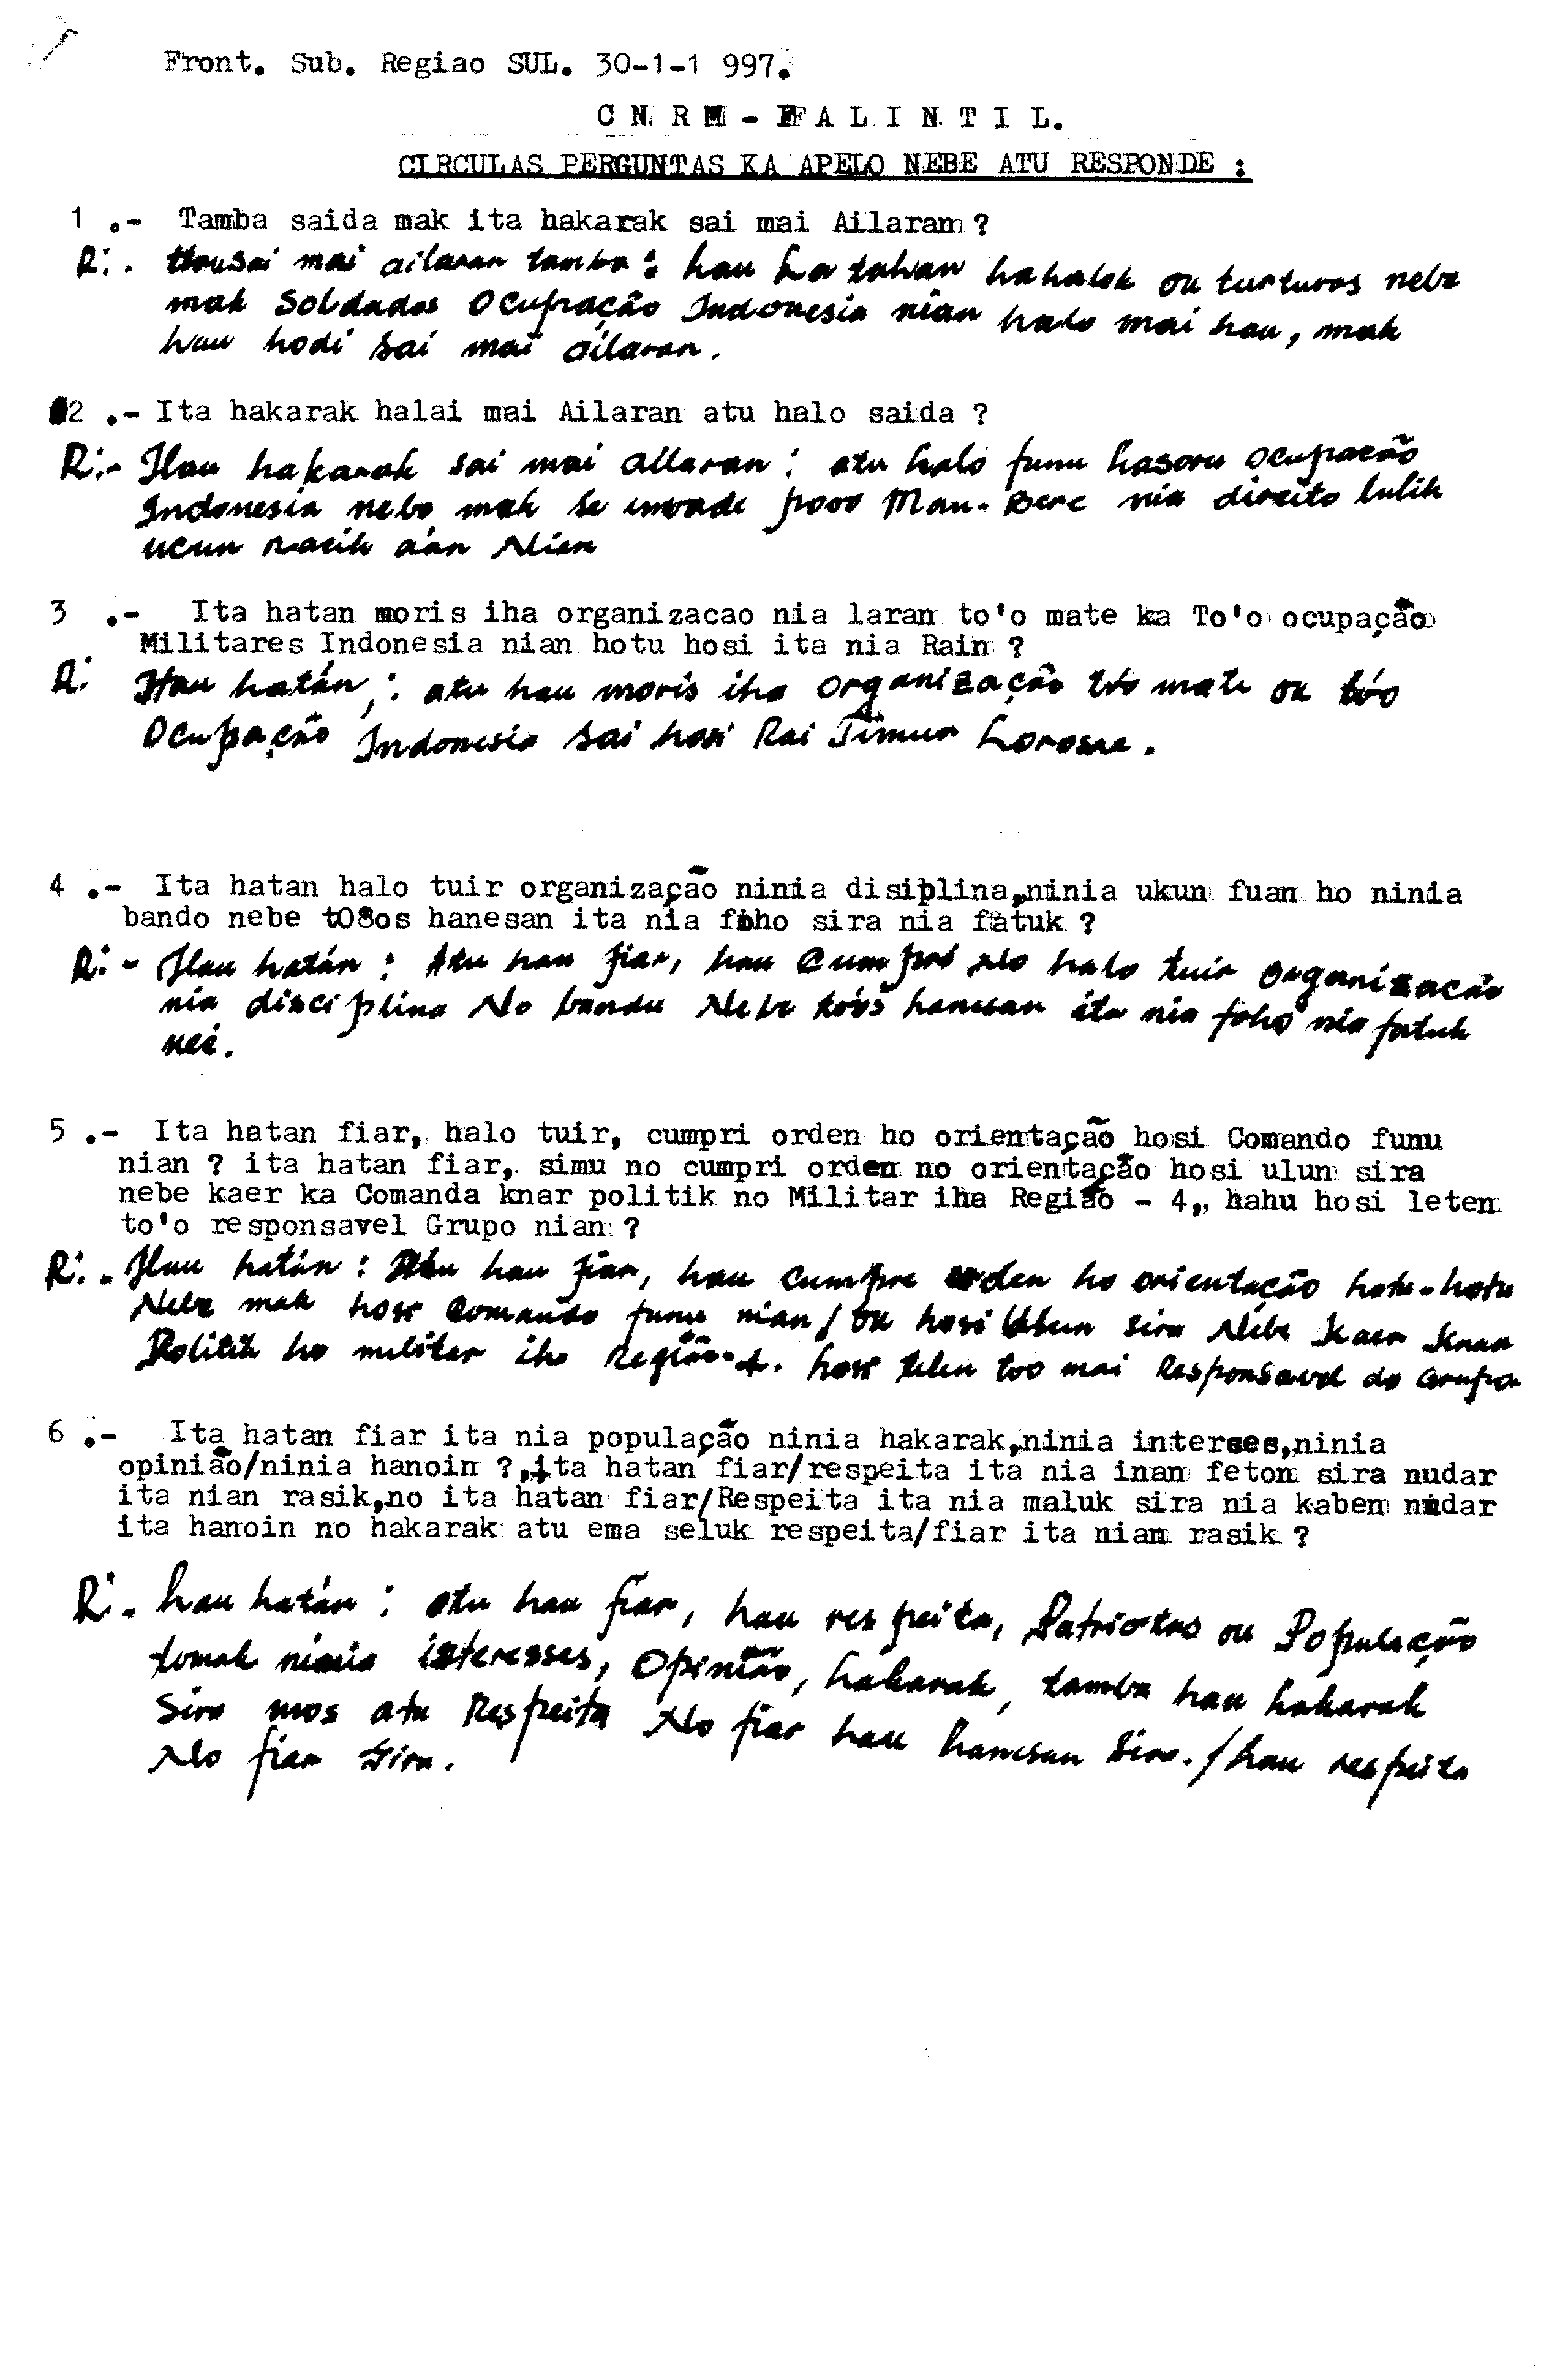 Front. Sub. Regiao SUL. 30-1-1 997.
C N R M - F A L I N T I L.
CIRCULAS PERGUNTAS KA APELO NEBE ATU RESPONDE :
1 .- Tamba saida mak ita hakarak sai mai Ailaram ?
R: . Hau sai mai ailaran tamba : hau La tahan hahalok ou turturas nebe
mak Soldados Ocupação Indonesia nian halo mai hau, mak
hau hodi sai mai ailaran.
2 .- Ita hakarak halai mai Ailaran atu halo saida ?
R:- Hau hakarak sai mai ailaran : atu halo funu hasoru ocupacão
Indonesia nebe mak se invade povo Mau-Bere nia direito lulik
ucun racik a'an Nian
3 .- Ita hatan moris iha organizacao nia laran to'o mate ka To'o ocupação
Militares Indonesia nian hotu hosi ita nia Rain ?
R: Hau hatán ; : atu hau moris iha organização to'o mate ou to'o
Ocupação Indonesia sai hosi Rai Timur Lorosae.
4 .- Ita hatan halo tuir organização ninia disiplina,ninia ukun fuan ho ninia
bando nebe tOSos hanesan ita nia foho sira nia fatuk ?
R: - Hau hatán : Atu hau fiar, hau cumpri No halo tuir organizacão
nia disciplina No bandu Nebe to'os hanesan ita nia foho nia fatuk
nei.
5 .- Ita hatan fiar, halo tuir, cumpri orden ho orientação hosi Comando funu
nian ? ita hatan fiar, simu no cumpri orden no orientação hosi ulun sira
nebe kaer ka Comanda knar politik no Militar iha Região - 4,, hahu hosi leten
to'o responsavel Grupo nian ?
R: . Hau hatán : Atu hau fiar, hau cumpre orden ho orientação hotu-hotu
Nebe mak hosi Comando funu nian / ou hosi Ulun sira Nebe Kaer Knar
Politik ho militar iha Região-4. hosi leten too mai Responsavel do Grupo
6 .- Ita hatan fiar ita nia população ninia hakarak,ninia interses,ninia
opinião/ninia hanoin ?,ita hatan fiar/respeita ita nia inan feton sira nudar
ita nian rasik,no ita hatan fiar/Respeita ita nia maluk sira nia kaben nudar
ita hanoin no hakarak atu ema seluk respeita/fiar ita nian rasik ?
R: . hau hatán : atu hau fiar, hau respeita, Patriotas ou População
tomak ninia interesses, Opinião, hakarak, tamba hau hakarak
Sira mos atu Respeita No fiar hau hanesan Sira. / hau respeita
No fiar Sira.